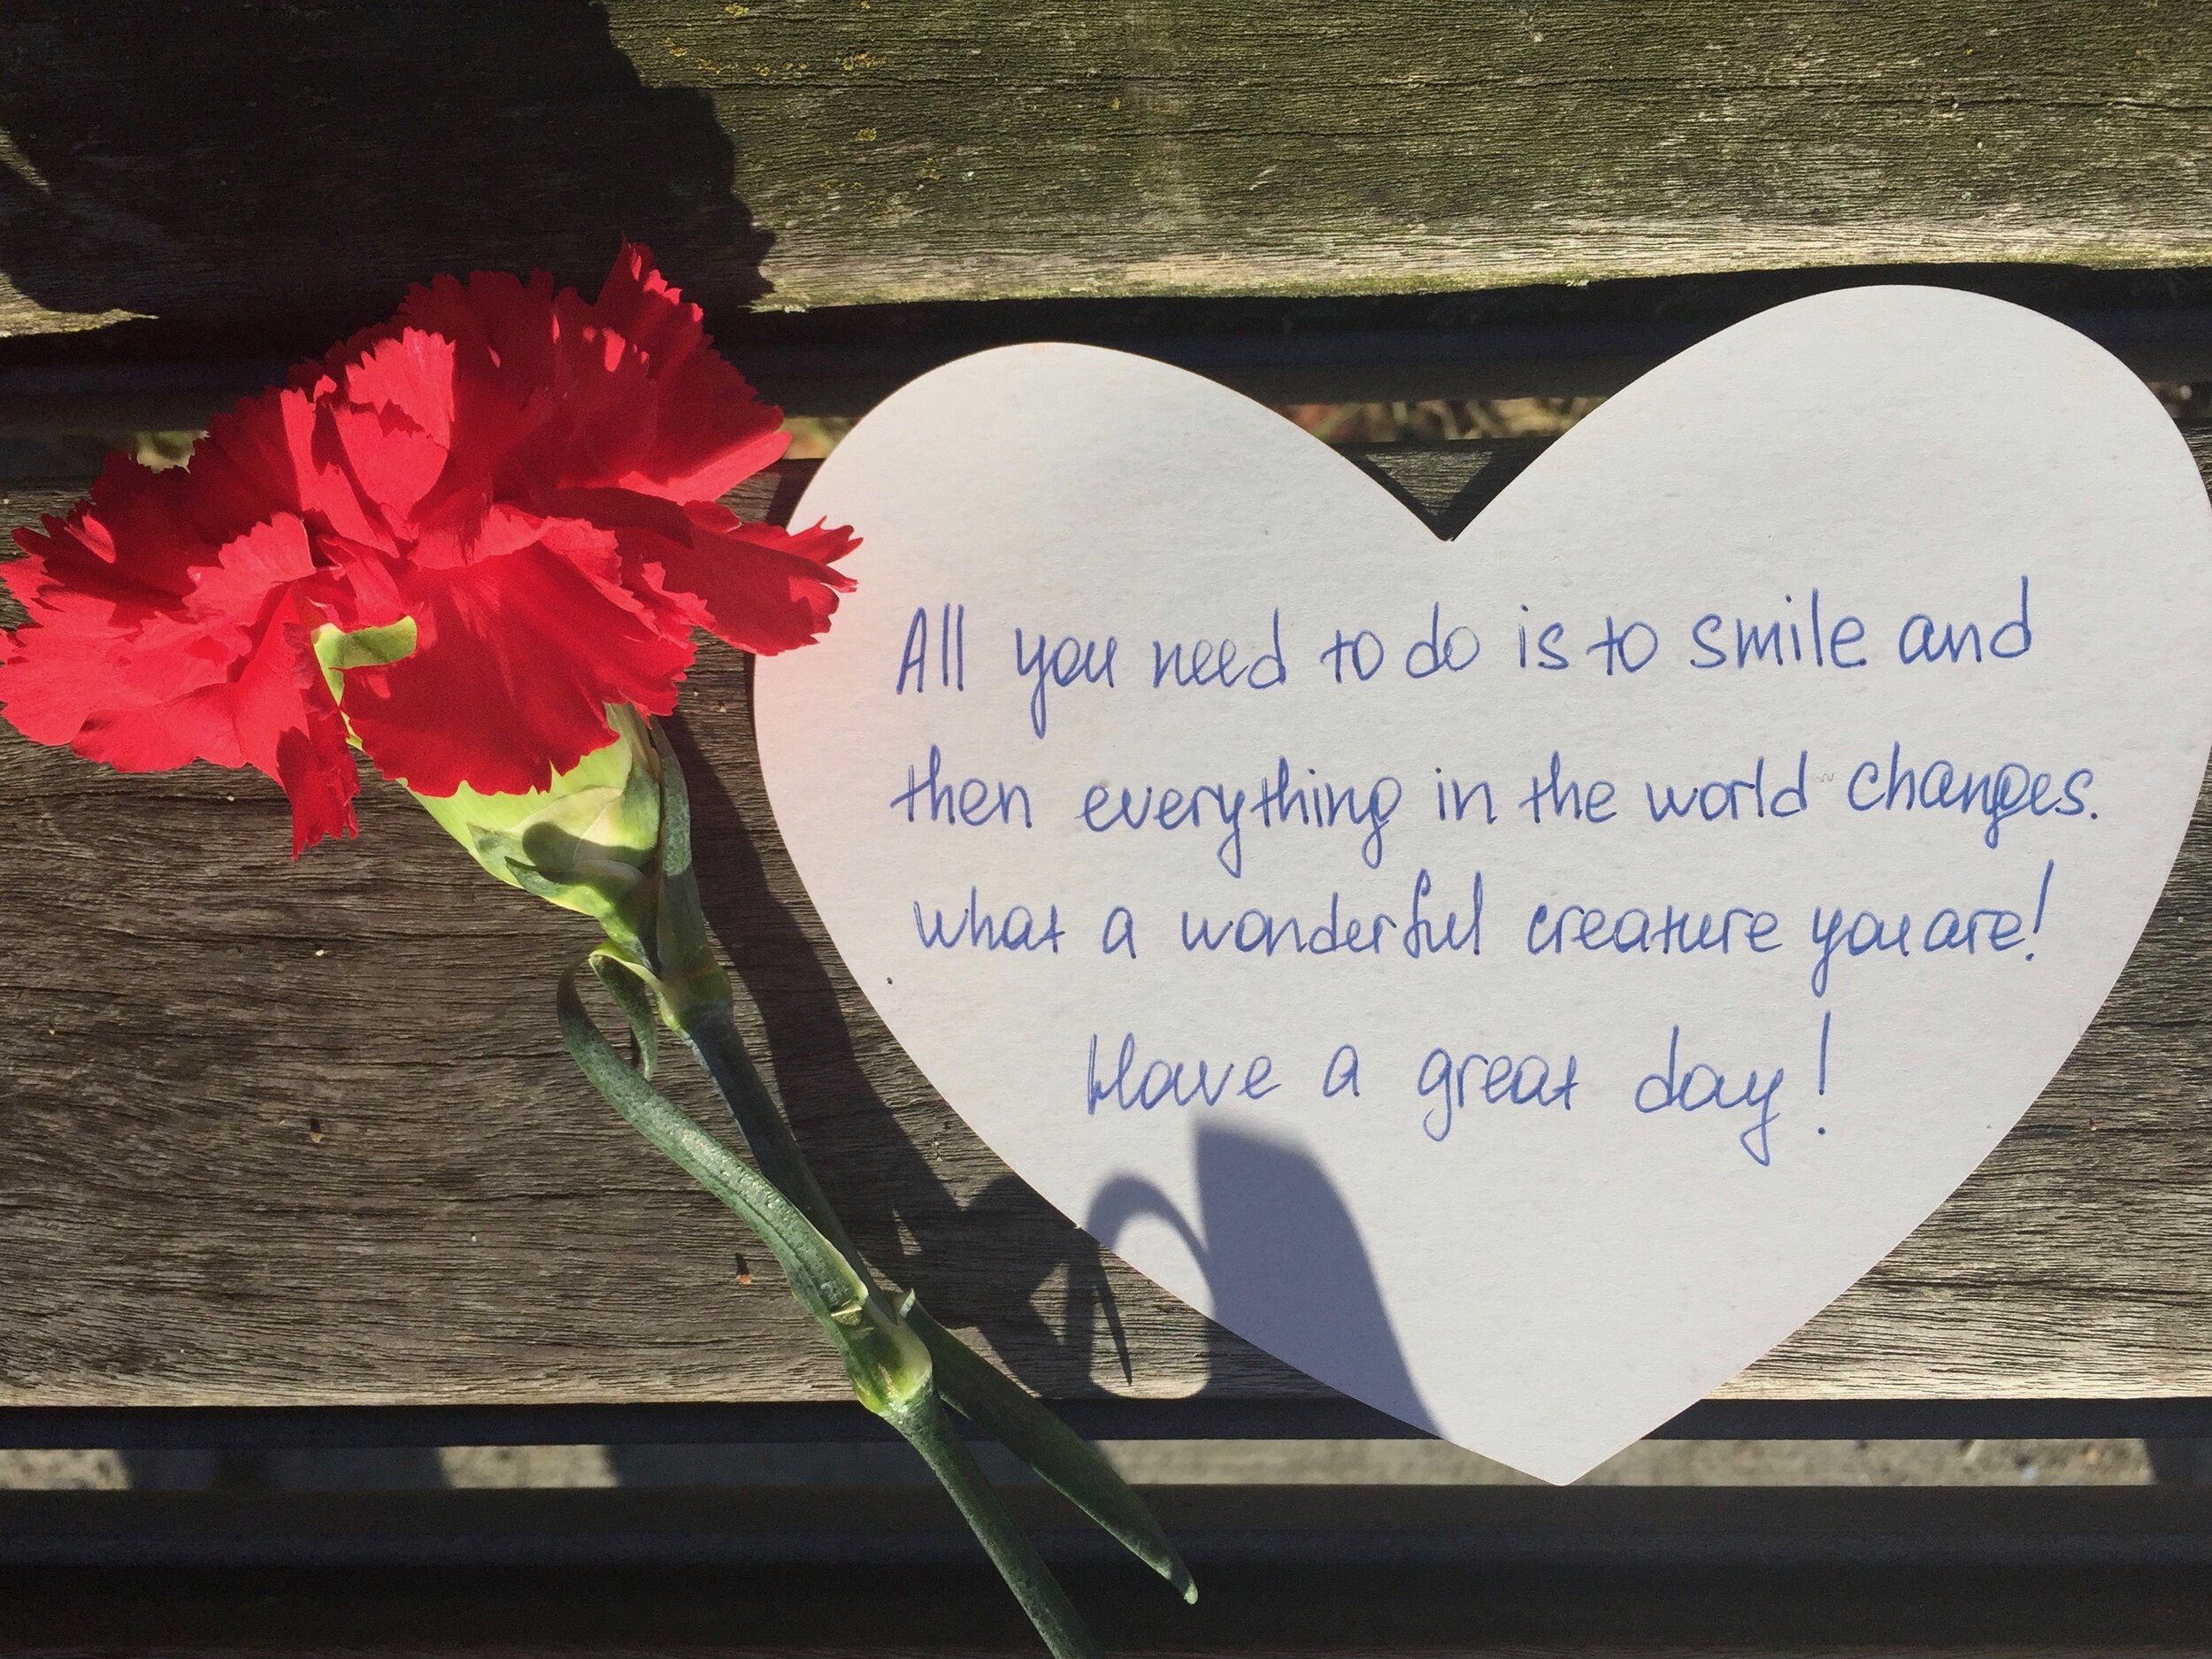 All you need to do is to smile and
then everything in the world changes.
what a wonderful creature you are!
Have a great day!